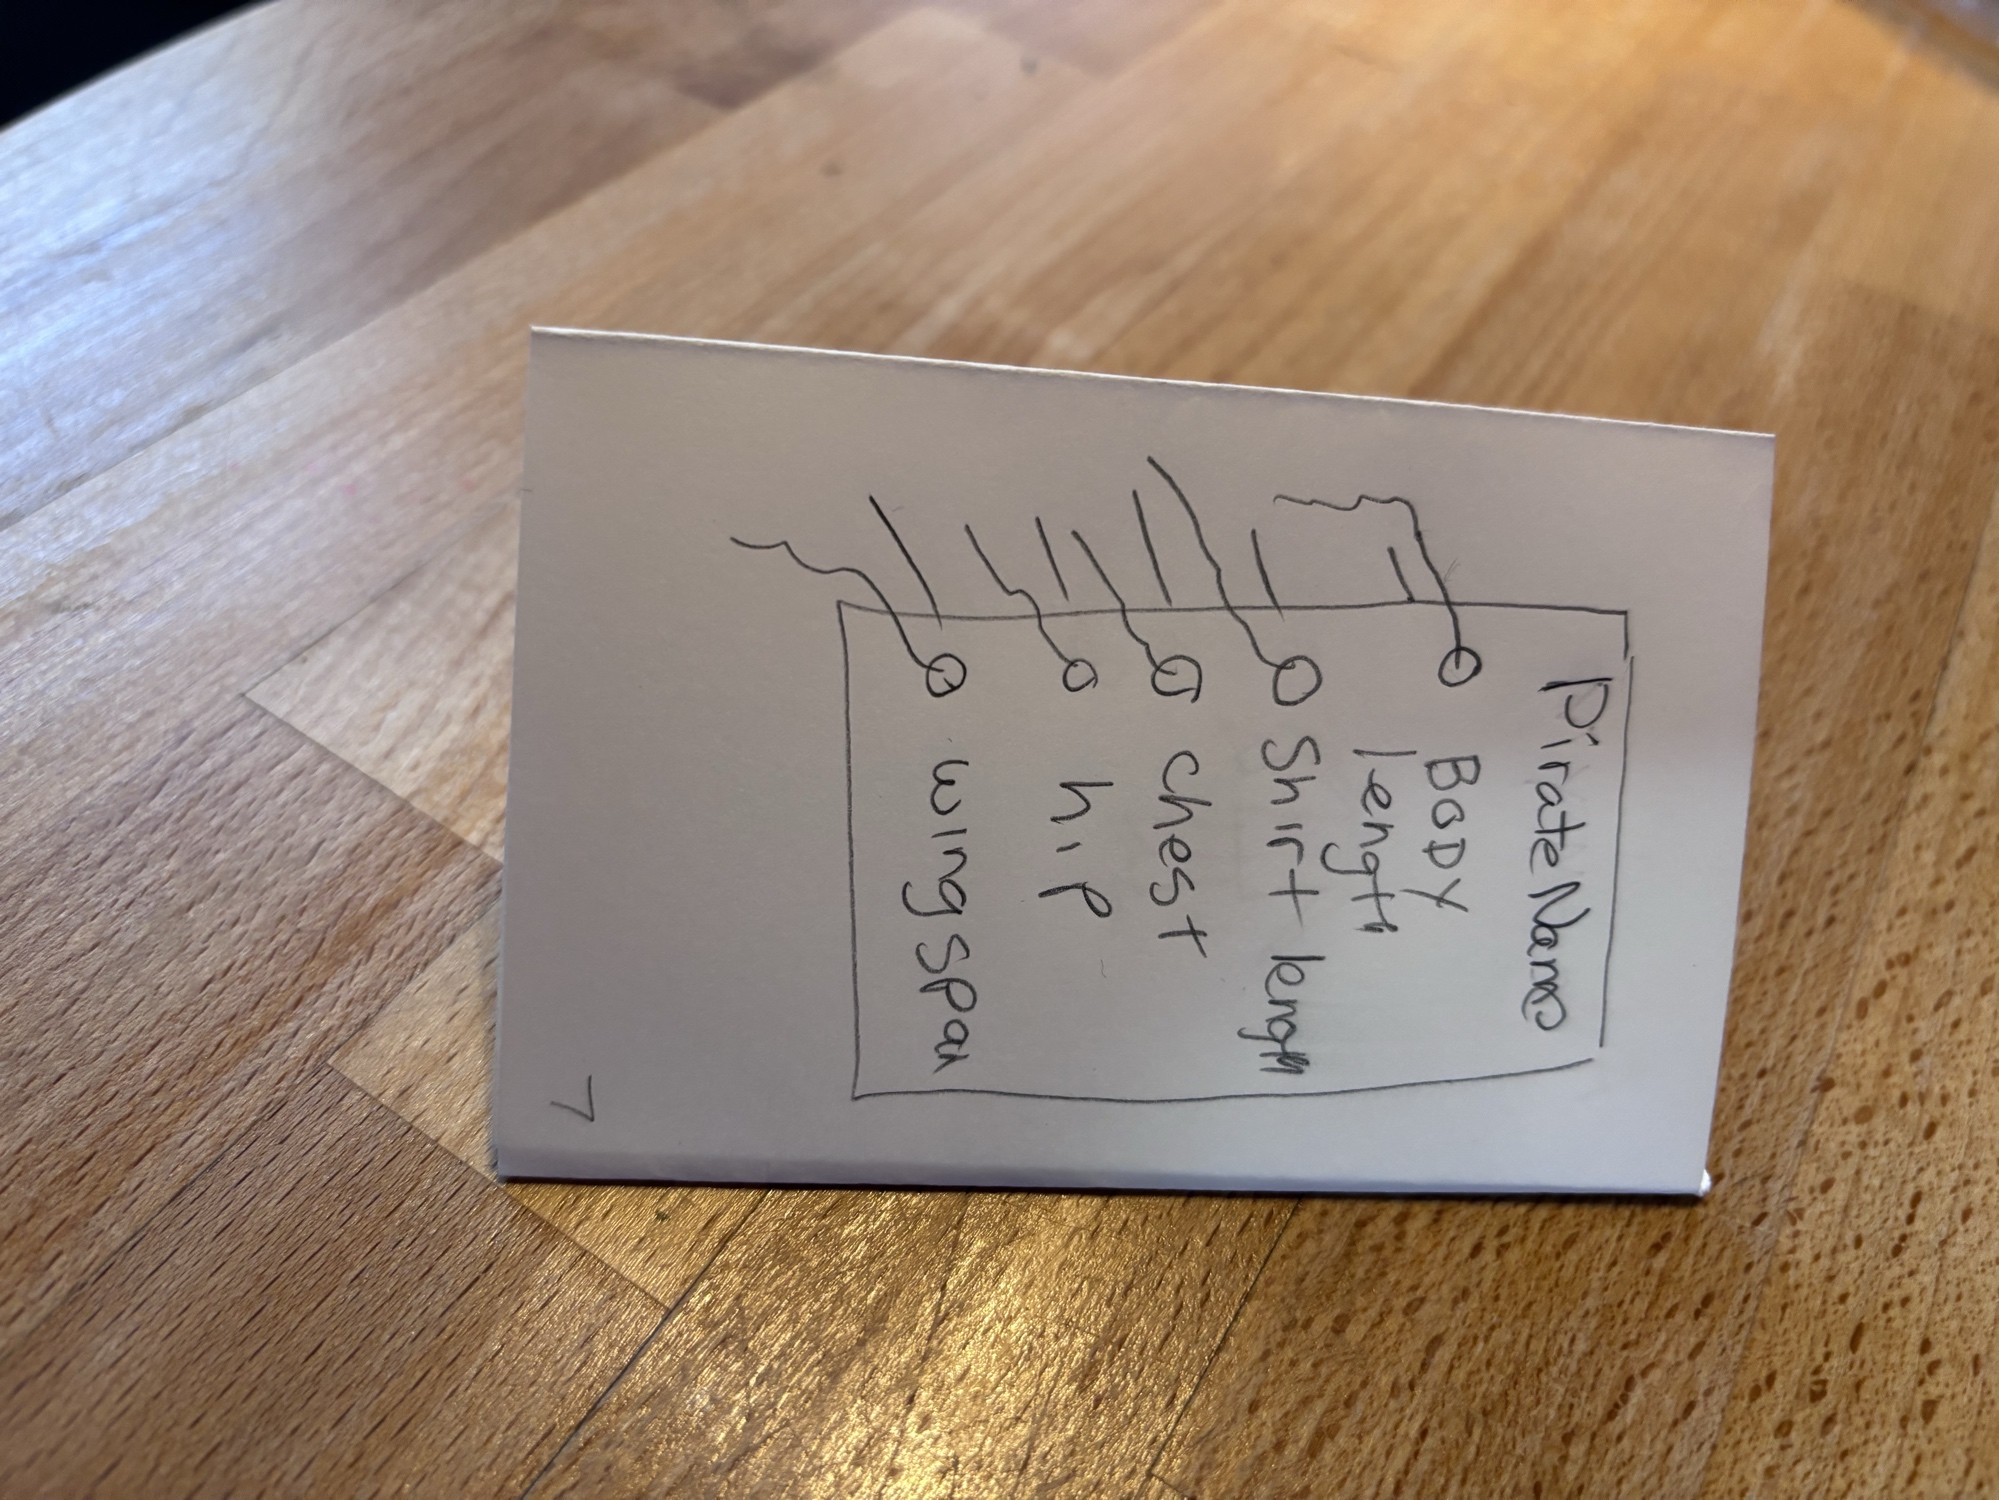 Pirate Name
BODY
length
Shirt length
chest
hip
wingspan
7